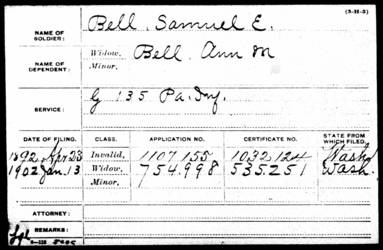 (3-H-3)
NAME OF SOLDIER: Bell, Samuel E.
NAME OF DEPENDENT: Widow, Bell, Ann M
Minor,
SERVICE: G 135 Pa. Inf.
DATE OF FILING. CLASS. APPLICATION NO. CERTIFICATE NO. STATE FROM WHICH FILED.
1892 Apr 23 Invalid, 1107.155 1032.124 Wash
1902 Jan. 13 Widow, 754.998 535.251 Wash.
Minor,
ATTORNEY:
REMARKS: